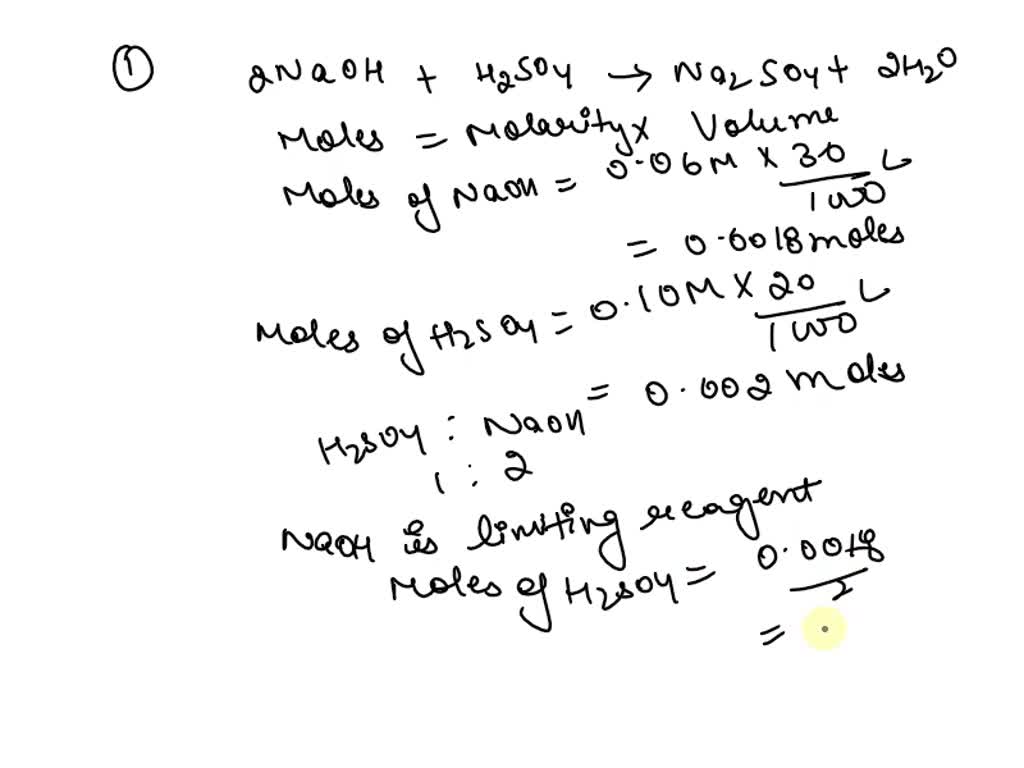 ① 2NaOH + H2SO4 → Na2SO4 + 2H2O
Moles = Molarity x Volume
Moles of NaOH = 0.06M x 30/1000 L
= 0.0018 moles
Moles of H2SO4 = 0.10M x 20/1000 L
= 0.002 moles
H2SO4 : NaOH
1 : 2
NaOH is limiting reagent
Moles of H2SO4 = 0.0018/2
=